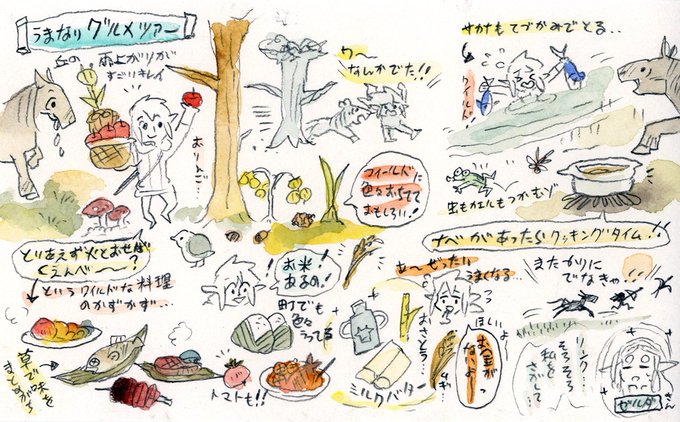 うまなりグルメツアー
丘の雨上がりが
すごいキレイ
おりんご
ワ〜
なんかでた!!
サカナもてづかみでとる..
ワイルド
虫もカエルもつかむゾ
フィールドに
色々おちてて
おもしろい!
ナベがあったらクッキングタイム!!
とりあえず火とおせば
くえんべ〜?
というワイルドな料理
のかずかず...
お米!
あるの!
町でも
色々
うってる
トマトも!!
草で味を
まとめがち
あ〜ぜったい
うまくなる...
おさとう...
ムギ
ミルク
バター
ほしいよ
お金が
ないよ
またかりに
でなきゃ!!
リンク...
そろそろ
私を
さがして...
ゼルダ
さん